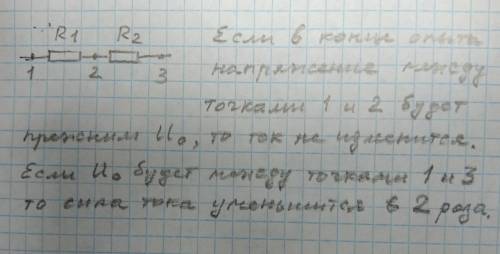 R1 R2
1 2 3
Если в конце опыта
напряжение между
точками 1 и 2 будет
прежним U₀, то ток не изменится.
Если U₀ будет между точками 1 и 3
то сила тока уменьшится в 2 раза.